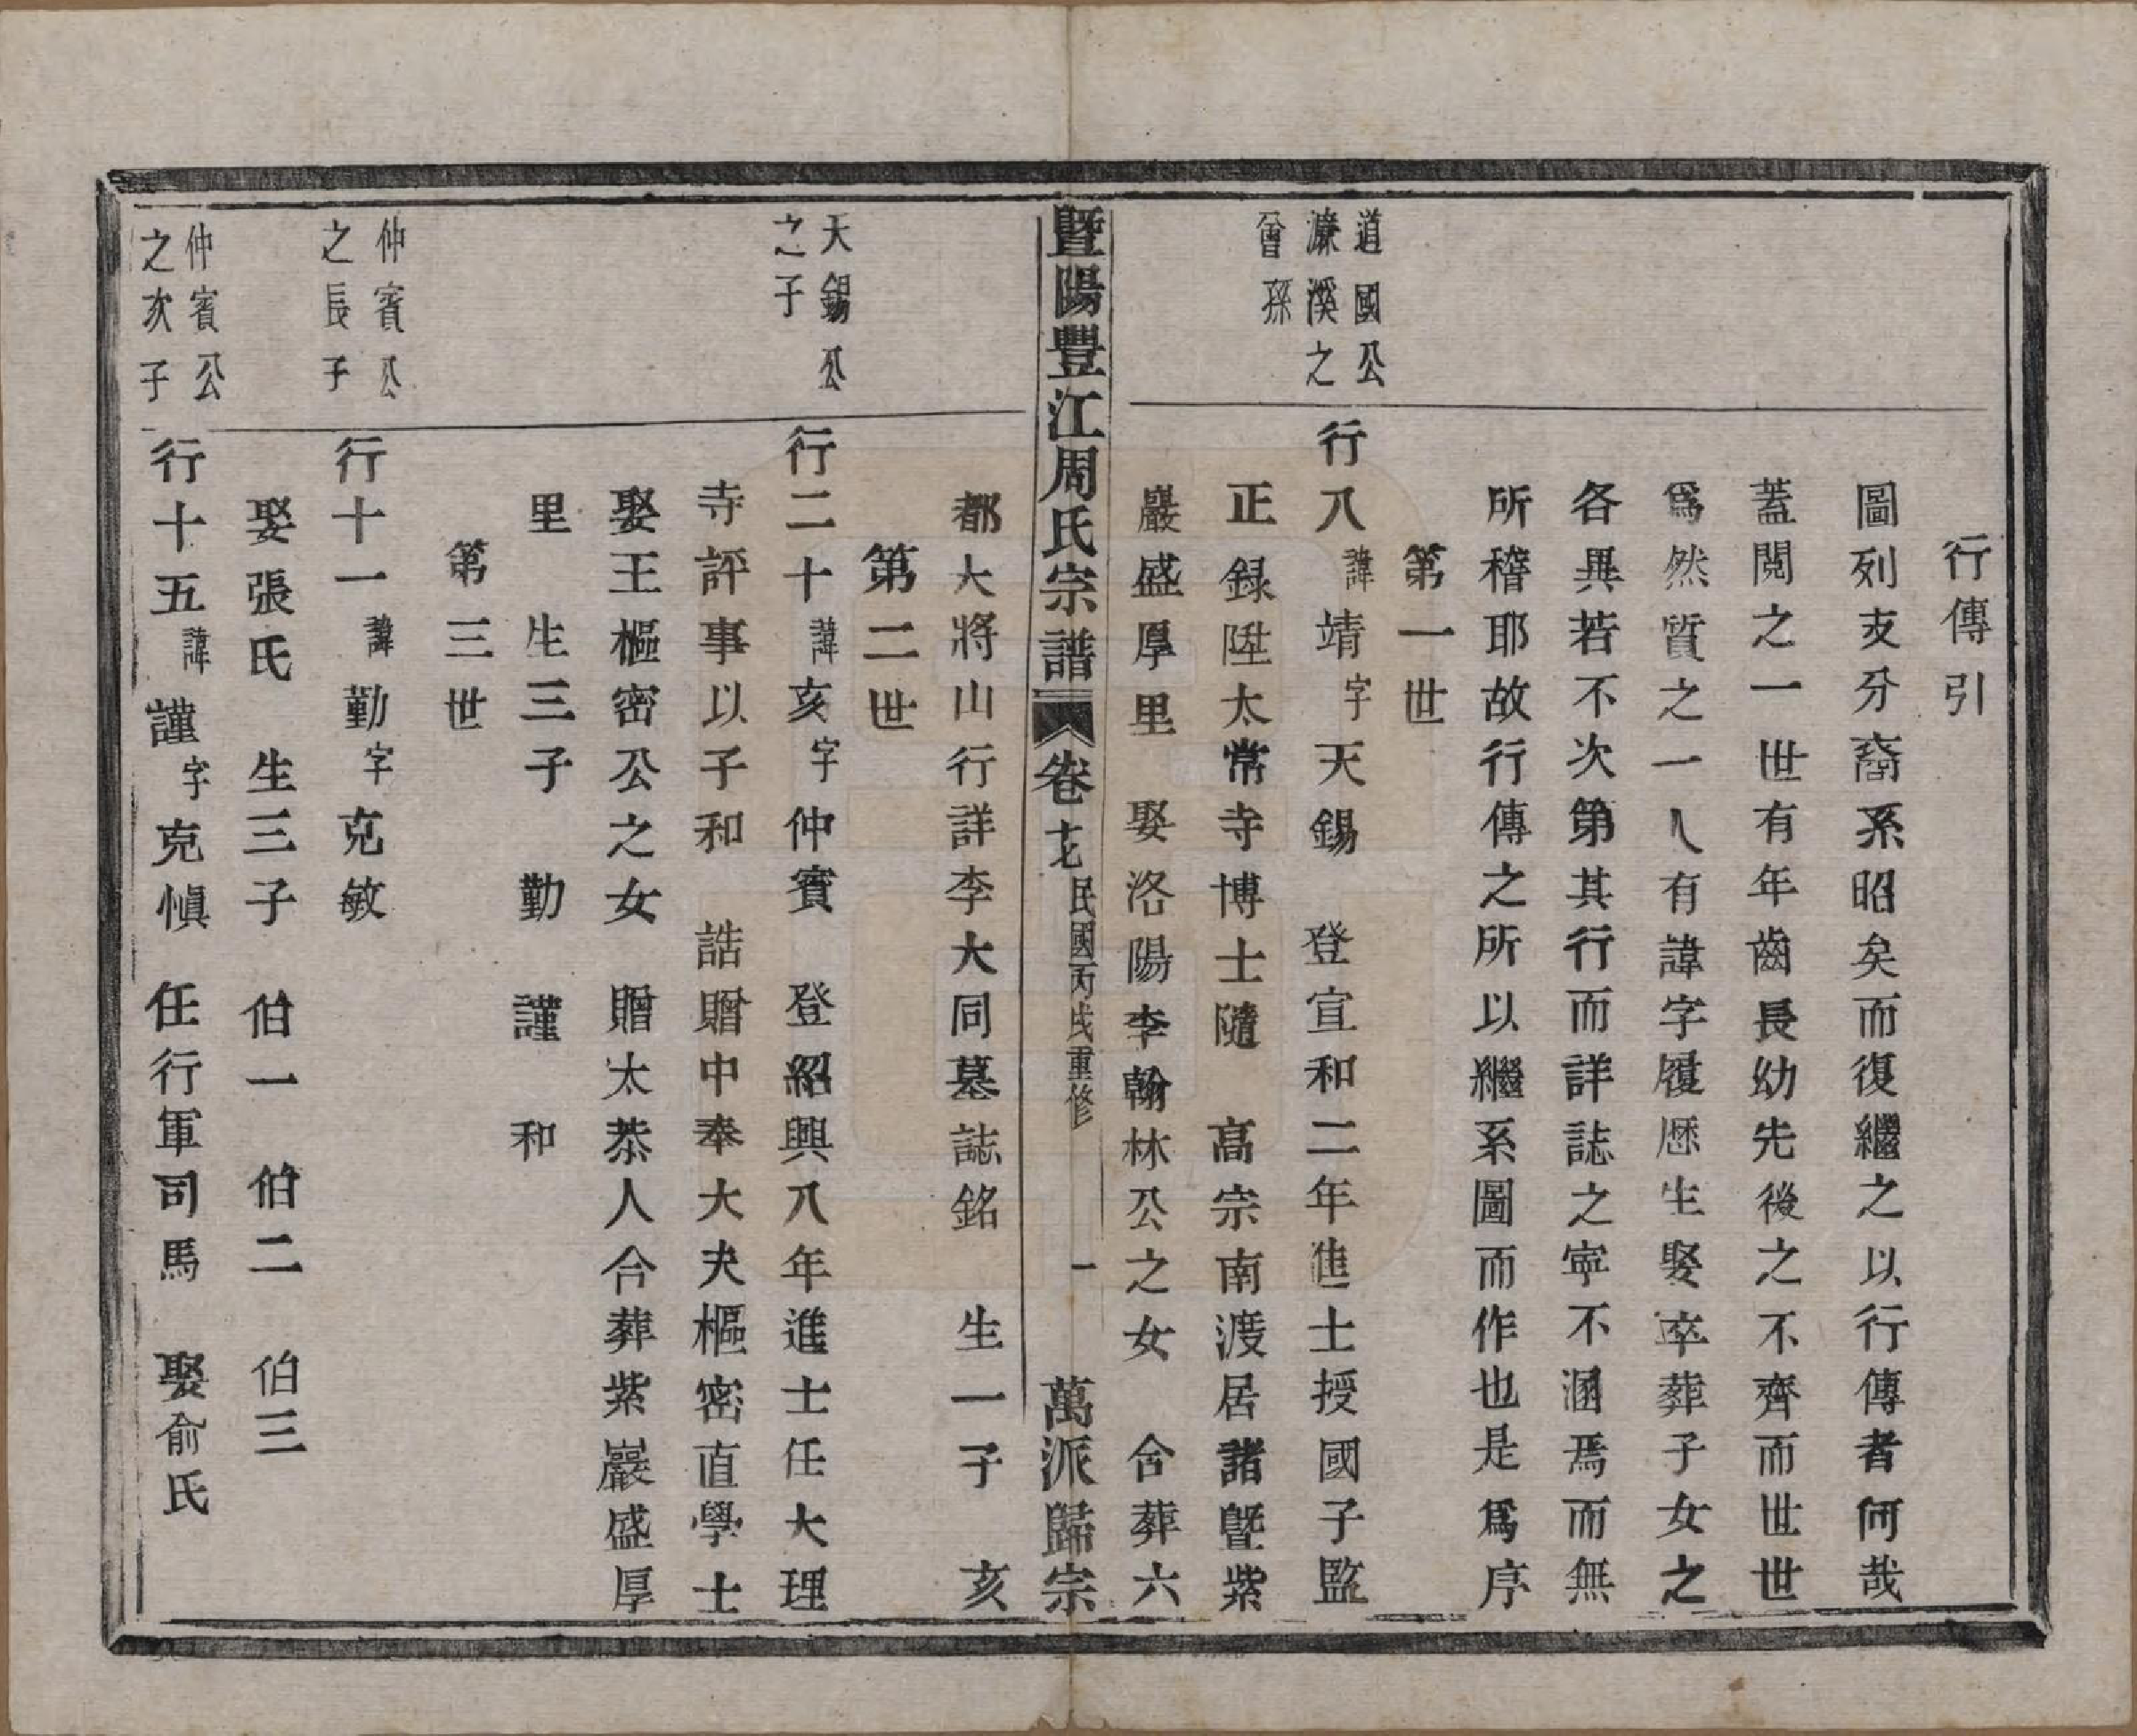 行傳引
圖列支分裔系昭矣而復繼之以行傳者何哉
蓋閱之一世有年齒長幼先後之不齊而世世
爲然質之一人有諱字履歷生娶卒葬子女之
各異若不次第其行而詳誌之寧不溷焉而無
所稽耶故行傳之所以繼系圖而作也是爲序
第一世
道國公
濂溪之
曾孫
行八諱靖字天錫 登宣和二年進士授國子監
正録陞太常寺博士隨 高宗南渡居諸暨紫
巖盛厚里 娶洛陽李翰林公之女 合葬六
暨陽豐江周氏宗譜 卷十七 民國丙戌重修 一 萬派歸宗
都大將山行詳李大同墓誌銘 生一子 亥
第二世
天錫公
之子
行二十諱亥字仲賓 登紹興八年進士任大理
寺評事以子和 誥贈中奉大夫樞密直學士
娶王樞密公之女 贈太恭人合葬紫巖盛厚
里 生三子 勤 謹 和
第三世
仲賓公
之長子
行十一諱勤字克敏
娶張氏 生三子 伯一 伯二 伯三
仲賓公
之次子
行十五諱謹字克愼 任行軍司馬 娶俞氏